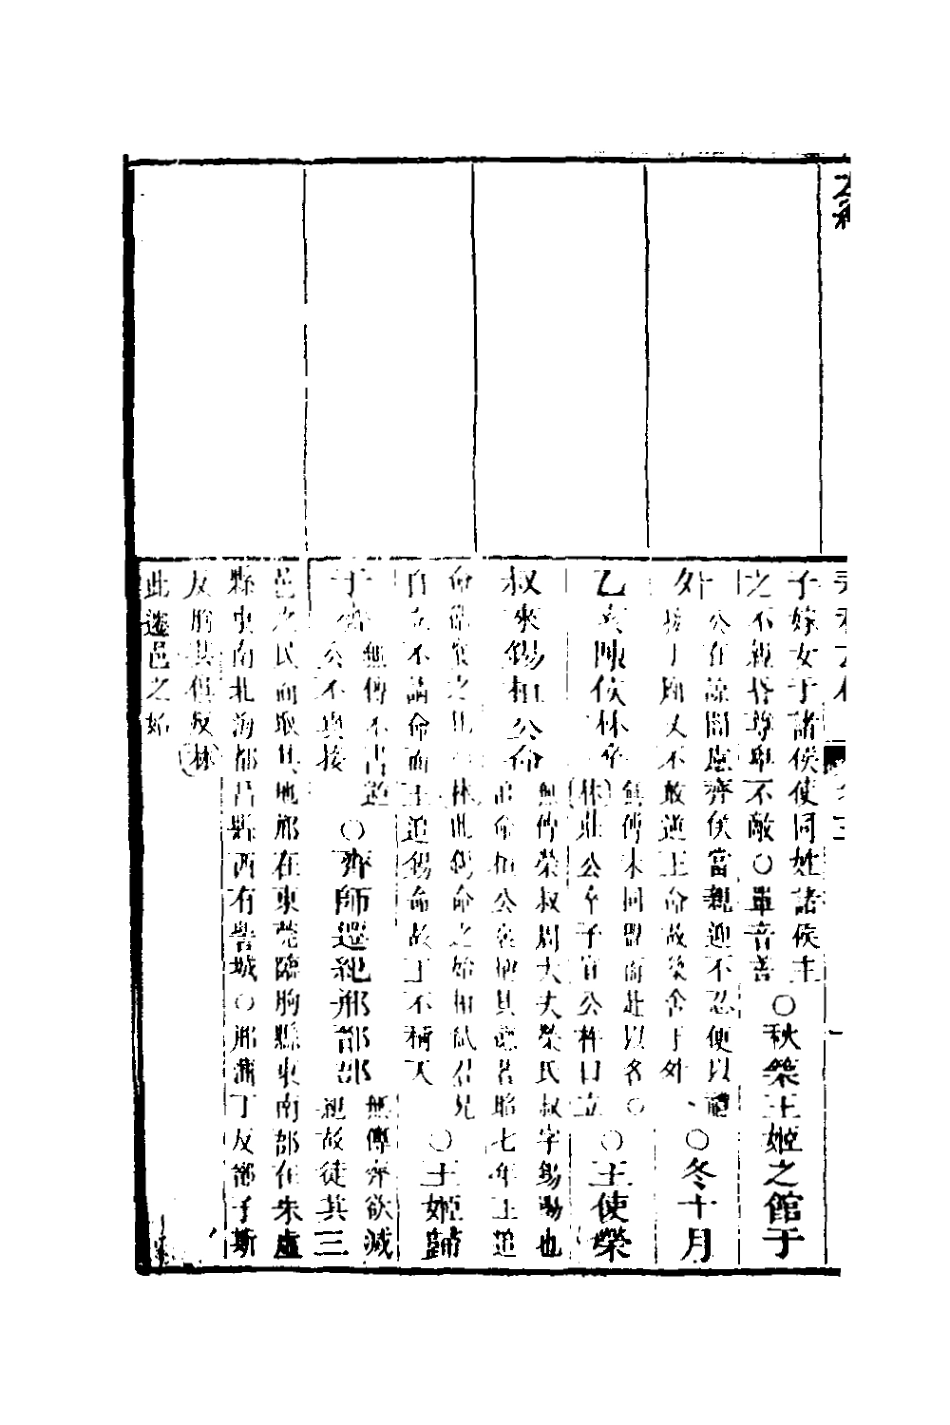 子嫁女于諸侯使同姓諸侯主
之不親昏尊卑不敵〇單音善
〇秋築王姬之館于
外
公在諒闇慮齊侯當親迎不忍便以禮
接於廟又不敢逆王命故築舍于外
〇冬十月
乙亥陳侯林卒
無傳未同盟而赴以名〇
林莊公卒子宣公杵臼立
〇王使榮
叔來錫桓公命
無傳榮叔周大夫榮氏叔字錫賜也
追命桓公褒稱其德若昭七年王追
命衛襄之比 林此錫命之始桓弑君兄
自立不請命而王追錫命故王不稱天
〇王姬歸
于齊
無傳不書逆
公不與接
〇齊師遷紀郱鄑郚
無傳齊欲滅
紀故徙其三
邑之民而取其地郱在東莞臨朐縣東南郚在朱虛
縣東南北海都昌縣西有訾城〇郱蒲丁反鄑子斯
反朐其俱反林
此遷邑之始